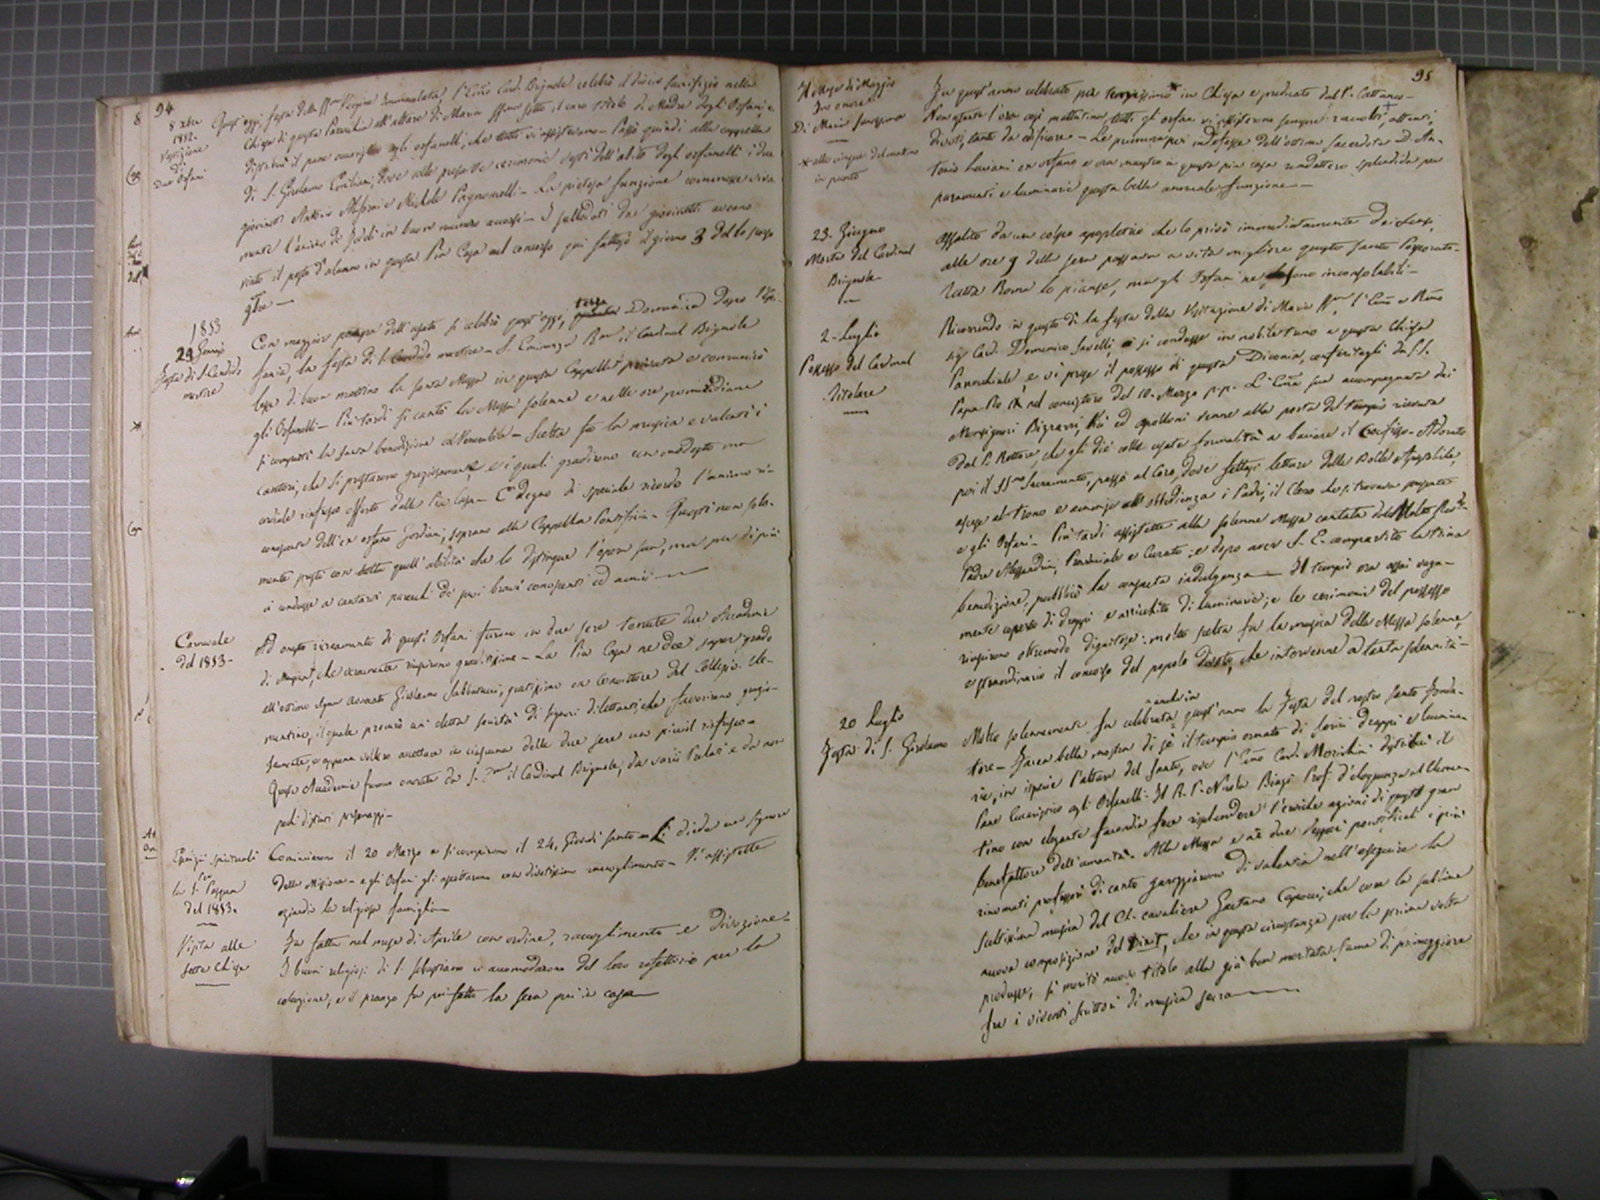 94
8 xbre
1852.
Vestizione
di
Due Orfani
Quest'oggi, festa della SSma Vergine Immacolata l'Emo Card. Brignole celebrò il divin Sacrifizio nella
Chiesa di questa Parocchia all'altare di Maria SSma sotto il caro titolo di Madre degli Orfani, e
distribuì il pane eucaristico agli orfanelli, che tutti vi assistevano - Passò quindi alla cappella
di S. Girolamo Emiliani, dove colle prescritte cerimonie vestì dell'abito degli orfanelli i due
giovinetti Antonio e Michele Pagnoncelli - La pietosa funzione commosse viva
mente l'animo di fedeli in buon numero accorsi - I sullodati due giovinetti aveano
vinto il posto d'alunno in questa Pia Casa nel concorso qui fattosi il giorno 3 dello scorso
9bre
1853
23 Gennajo
Festa di S. Candido
martire
Con maggior pompa dell'usato si celebrò quest'oggi, terza Domenica dopo l'Epi-
fania, la festa di S. Candido martire - S. Eminenza Rma il Cardinal Brignole
lesse di buon mattino la santa Messa in questa Cappella privata e comunicò
gli Orfanelli - Più tardi si cantò la Messa solenne e nelle ore pomeridiane
si compartì la santa benedizione col Venerabile - Scelta fu la musica e valenti i
cantori, che si prestarono graziosamente, e i quali gradirono un modesto ma
cordiale rinfresco offerto dalla Pia Casa - È degno di speciale ricordo l'animo ri-
conoscente dell'ex orfano Giordani, soprano alla Cappella Pontificia - Questi non sola-
mente prestò con tutta quell'abilità che lo distingue l'opera sua, ma per di più
ci condusse a cantarvi parecchi de' suoi bravi conoscenti ed amici
Carnevale
del 1853-
Ad onesto ricreamento di questi Orfani furono in due sere tenute due Accademie
di Musica, che veramente riuscirono graditissime - La Pia Casa ne dee saper grado
all'ottimo signor Avvocato Girolamo Sabbatucci, gratissimo ex Convittore del Collegio Cle-
mentino, il quale procurò un'eletta società di signori dilettanti che favorirono grazio-
samente, e appena vollero accettare in ciascuna delle due sere un piccol rinfresco -
Queste Accademie furono onorate da S. Em. il Cardinal Brignole, da varii Prelati e da non
pochi distinti personaggi -
Esercizi spirituali
per
la S. Pasqua
del 1853.
Cominciarono il 20 Marzo e si compirono il 24, Giovedì santo - Li diede un signore
della Missione - e gli Orfani gli ascoltarono con divotissimo raccoglimento - Vi assistette
eziandio la religiosa famiglia -
Visita alle
sette Chiese
Fu fatta nel mese di Aprile con ordine, raccoglimento e divozione -
I buoni religiosi di S. Sebastiano ci accomodarono del loro refettorio per la
colezione, e il pranzo fu poi fatto la sera qui in casa
95
Il Mese di Maggio
In onore
Di Maria Santissima
* alle cinque del mattino
in punto
Fu quest'anno celebrato per tempissimo * in Chiesa e predicato dal P. Cattaneo -
Non ostante l'ora così mattutina, tutti gli orfani vi assisterono sempre raccolti, attenti,
divoti, tanto da edificare - Le premure poi indefesse dell'ottimo Sacerdote D. An-
tonio Luviani ex orfano e ora maestro in questa pia casa rendettero splendida per
paramenti e luminarie questa bella annuale funzione
23. Giugno
Morte del Cardinal
Brignole -
Assalito da un colpo apopletico che lo privò immediatamente dei sensi,
alle ore 9 della sera passava a vita migliore questo santo Porporato -
Tutta Roma lo pianse, ma gli Orfani ne sono inconsolabili -
2- Luglio
Possesso del Cardinal
Titolare
Ricorrendo in questo dì la festa della Visitazione di Maria SSma, l'Emo e Rmo
Sig. Card. Domenico Savelli, si condusse in nobile treno a questa Chiesa
Parrochiale, e vi prese il possesso di questa Diaconia, conferitagli da S.S.
Papa Pio IX nel concistoro del 10. Marzo p.p. L'Em̃a sua accompagnata dai
Monsignori Bizzarri, Pila ed Apolloni venne alla porta del tempio ricevuta
dal P. Rettore, che gli diè colle usate formalità a baciare il Crocifisso - Adorato
poi il SSmo Sacramento, passò al Coro, dove fattasi lettura delle Bolle Apostoliche,
ascese al trono e ammise all'obbedienza i Padri, il Clero che si trovava presente
e gli Orfani - Più tardi assistette alla solenne Messa cantata dal Molto Revdo
Padre Alessandrini, Provinciale e Curato: e dopo aver S. E. compartito la trina
benedizione, pubblicò la consueta indulgenza - Il tempio era assai vaga-
mente coperto di drappi e arricchito di luminarie; e le cerimonie del possesso
riuscirono oltremodo dignitose: molto scelta fu la musica della Messa solenne,
e straordinario il concorso del popolo divoto, che intervenne a tanta solennità -
20 Luglio
Festa di S. Girolamo
Molto solennemente fu celebrata anche in quest'anno la Festa del nostro Santo Fonda-
tore - Facea bella mostra di sè il tempio ornato di serici drappi e lumina-
rie, in ispecie l'altare del Santo, ove l'Emo Card. Morichini distribuì il
Pane Eucaristico agli Orfanelli - Il R. P. Nicola Biagi Prof. d'eloquenza al Clemen-
tino con elegante facondia fece risplendere l'eroiche azioni di questo gran
Benefattore dell'umanità. Alla Messa e a' due Vesperi pontificali i più
rinomati professori di canto gareggiarono di valentia nell'eseguire la
sceltissima musica del Ch. cavaliere Gaetano Capocci, che con la sublime
nuova composizione del Dixit, che in questa circostanza per la prima volta
produsse, si meritò nuovo titolo alla già ben meritata fama di primeggiare
fra i viventi scrittori di musica sacra